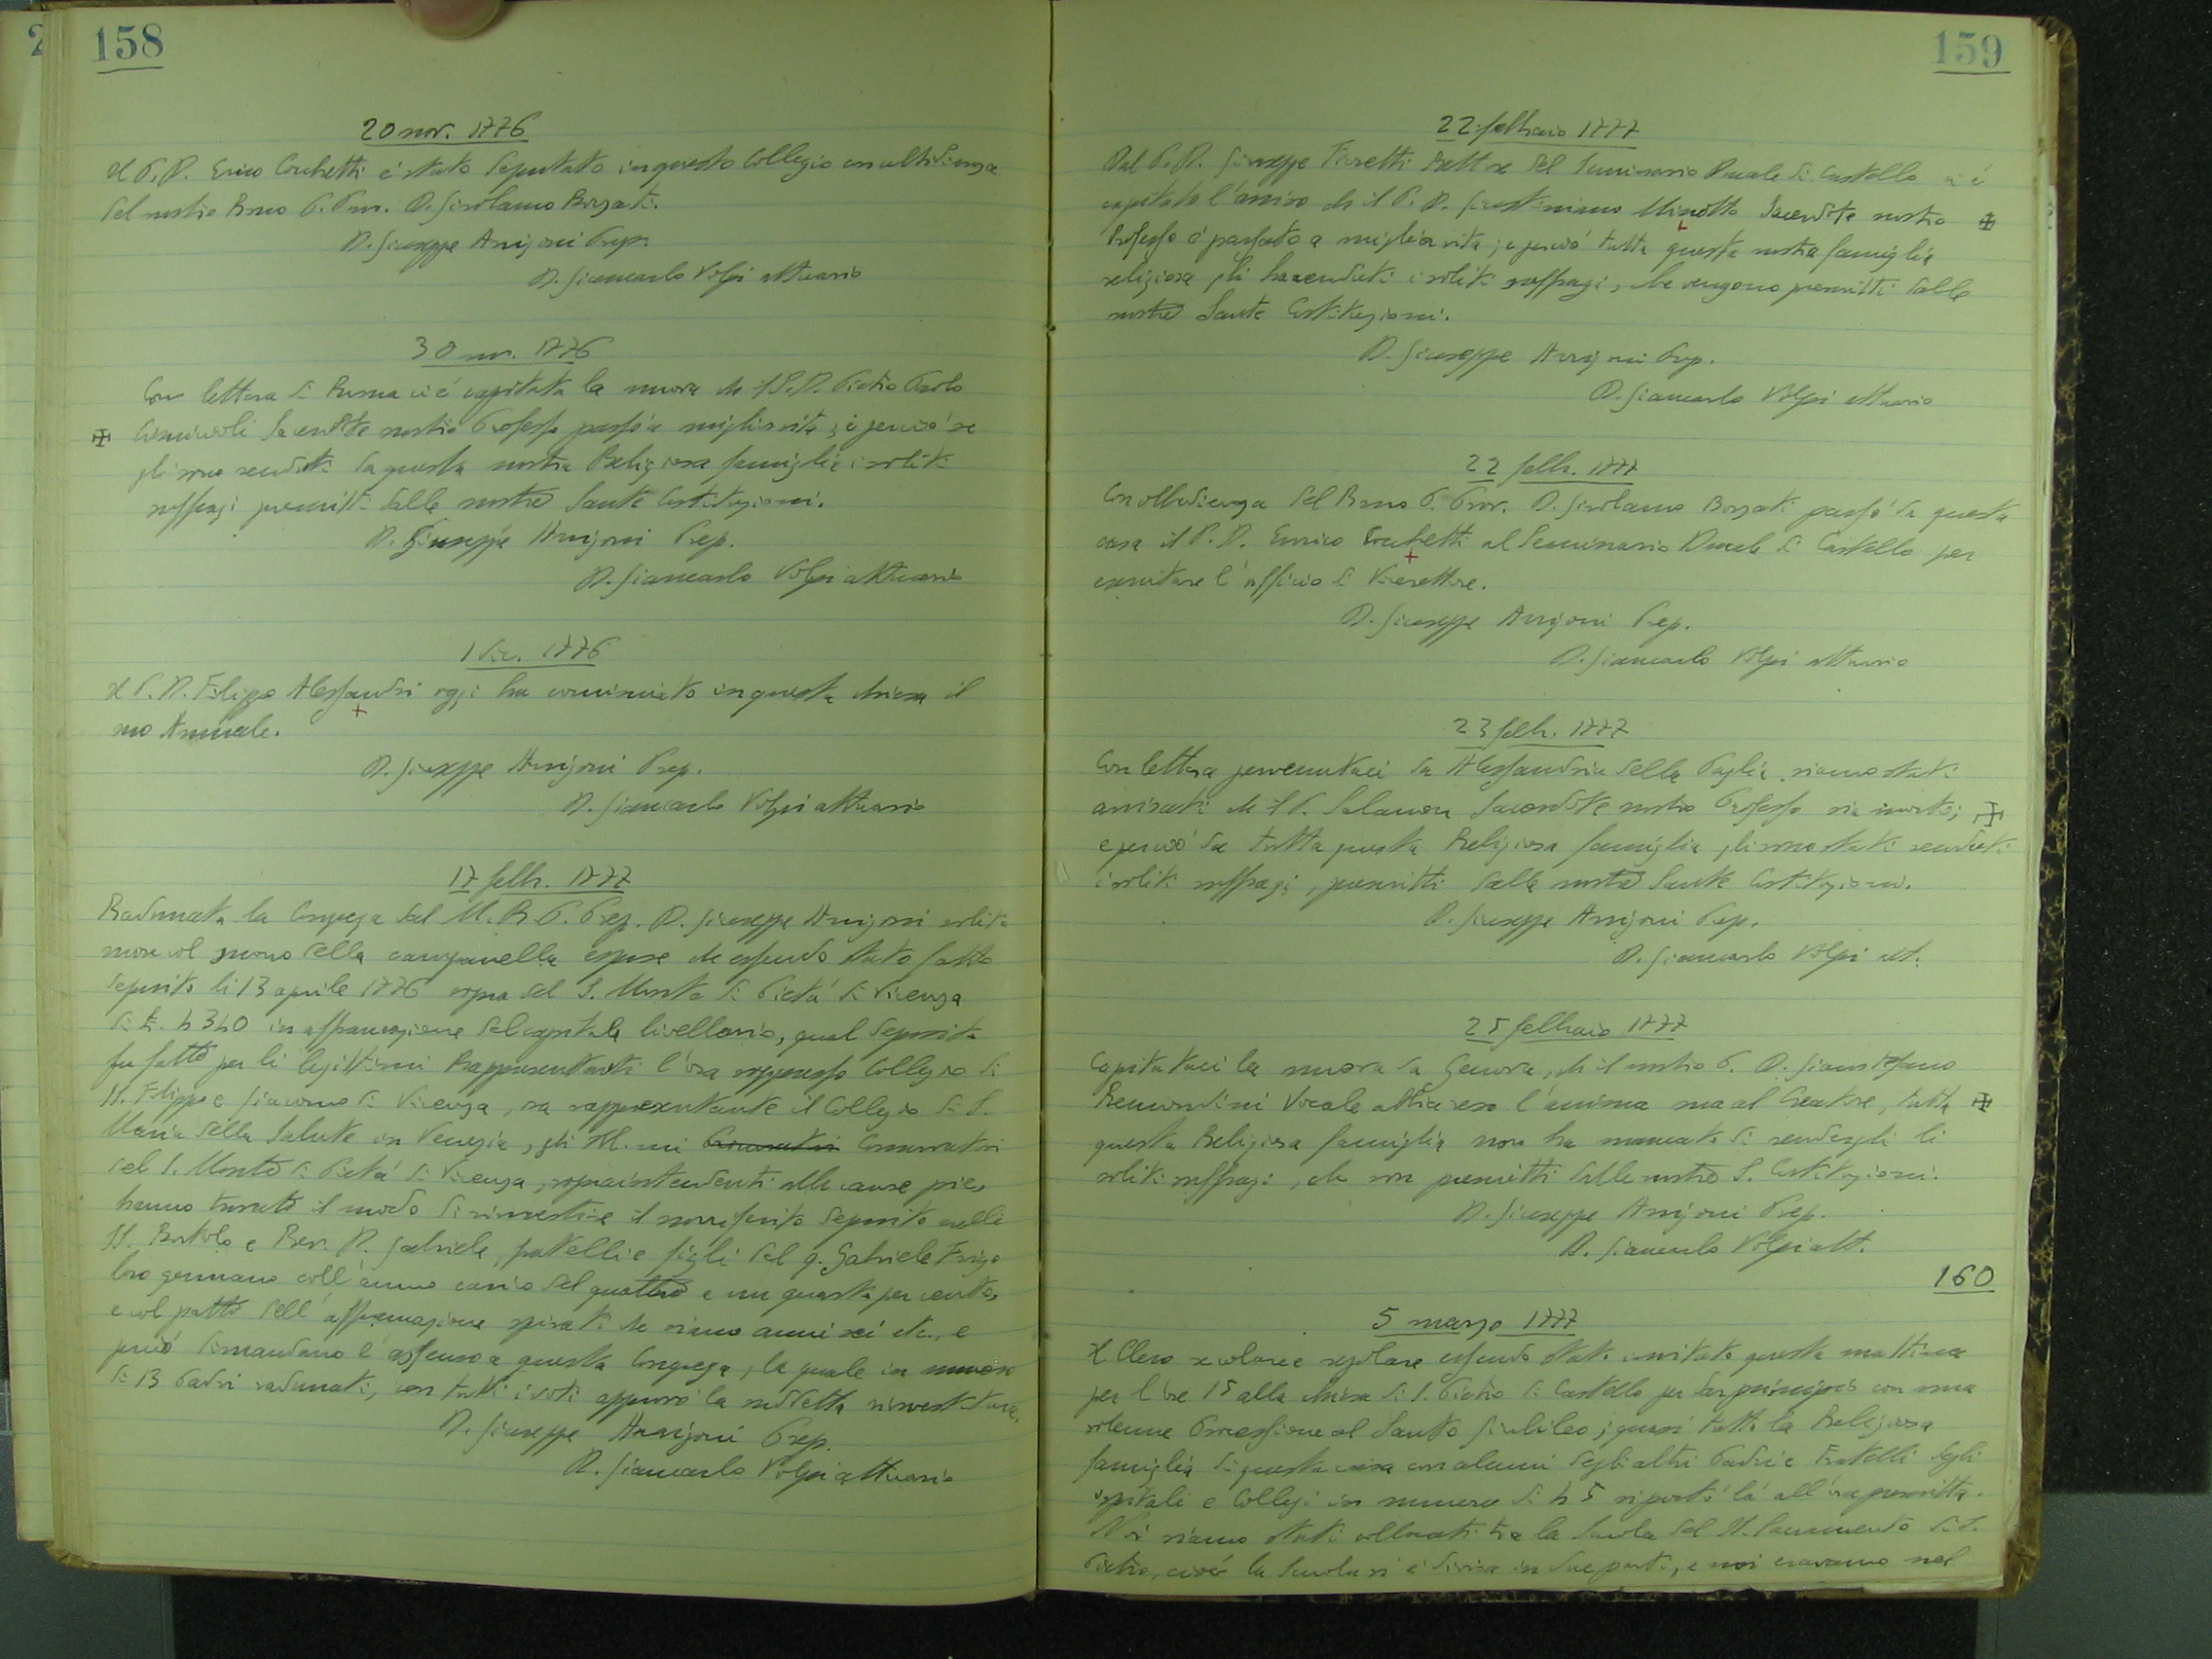 158
20 nov. 1776
Il P. D. Enrico Cochetti è stato deputato in questo Collegio con ubbidienza
del nostro Rmo P. Prov. D. Girolamo Borsati.
D. Giuseppe Arrigoni Prep.
D. Giancarlo Volpi attuario
30 nov. 1776
Con lettera di Roma ci è capitata la nuova che il P. D. Pietro Paolo
sacerdote nostro Professo passò a miglior vita; e perciò se
gli sono renduti da questa nostra Religiosa famiglia i soliti
suffragi prescritti dalle nostre Sante Costituzioni.
D. Giuseppe Arrigoni Prep.
D. Giancarlo Volpi attuario
1 dic. 1776
Il P. D. Filippo Alessandri oggi ha cominciato in questa chiesa il
suo Annuale.
D. Giuseppe Arrigoni Prep.
D. Giancarlo Volpi attuario
17 febb. 1777
Radunata la Congrega dal M. R. P. Prep. D. Giuseppe Arrigoni solito
more col suono della campanella espose che essendo stato fatto
deposito li 13 aprile 1776 sopra del S. Monte di Pietà di Vicenza
di L. 4340 in affrancazione del capitale livellario, qual deposito
fu fatto per li legittimi Rappresentanti l'ora soppresso Collegio di
SS. Filippo e Giacomo di Vicenza, ora rappresentante il Collegio di S.
Maria della Salute in Venezia, gli Ill.mi Conservatori
del S. Monte di Pietà di Vicenza, sopraintendenti alle cause pie,
hanno trovato il modo di rinvestire il surriferito deposito nelli
SS. Bortolo e Rev. D. Gabriele, fratelli e figli del q. Gabriele Frigo
loro germano coll'annuo carico del quattro e un quarto per cento,
e col patto dell'affrancazione spirati che siano anni sei etc., e
perciò dimandano l'assenso a questa Congrega, la quale in numero
di 13 Padri radunati, con tutti i voti approvò la suddetta rinvestitura.
D. Giuseppe Arrigoni Prep.
D. Giancarlo Volpi attuario
159
22 febbraio 1777
Dal P. D. Giuseppe Fioretti Rettore del Seminario Ducale di Castello ci è
capitato l'avviso che il P. D. Giustiniano Minotto Sacerdote nostro
Professo è passato a miglior vita; e perciò tutta questa nostra famiglia
religiosa gli ha renduti i soliti suffragi, che vengono prescritti dalle
nostre Sante Costituzioni.
D. Giuseppe Arrigoni Prep.
D. Giancarlo Volpi attuario
22 febb. 1777
Con obbedienza del Rmo P. Prov. D. Girolamo Borsati passò da questa
casa il P. D. Enrico Cochetti al Seminario Ducale di Castello per
esercitare l'ufficio di Vicerettore.
D. Giuseppe Arrigoni Prep.
D. Giancarlo Volpi attuario
23 febb. 1777
Con lettera pervenutaci da Alessandria della Paglia siamo stati
avvisati che il P. Salamon Sacerdote nostro Professo sia morto;
e perciò da tutta questa Religiosa famiglia gli sono stati renduti
i soliti suffragi, prescritti dalle nostre Sante Costituzioni.
D. Giuseppe Arrigoni Prep.
D. Giancarlo Volpi att.
25 febbraio 1777
Capitataci la nuova da Genova, che il nostro P. D. Gianstefano
Remondini Vocale abbia reso l'anima sua al Creatore, tutta
questa Religiosa famiglia non ha mancato di rendergli li
soliti suffragi, che son prescritti dalle nostre S. Costituzioni.
D. Giuseppe Arrigoni Prep.
D. Giancarlo Volpi att.
160
5 marzo 1777
Il Clero secolare e regolare essendo stato invitato questa mattina
per l'ore 15 alla chiesa di S. Pietro di Castello per dar principio con una
solenne Processione al Santo Giubileo; quasi tutta la Religiosa
famiglia di questa casa con alcuni degli altri Padri e Fratelli degli
ospitali e Collegi in numero di 45 si portò là all'ora prescritta.
Noi siamo stati collocati tra la Scuola del SS. Sacramento di S.
Pietro, cioè la Scuola si è divisa in due parti, e noi eravamo nel